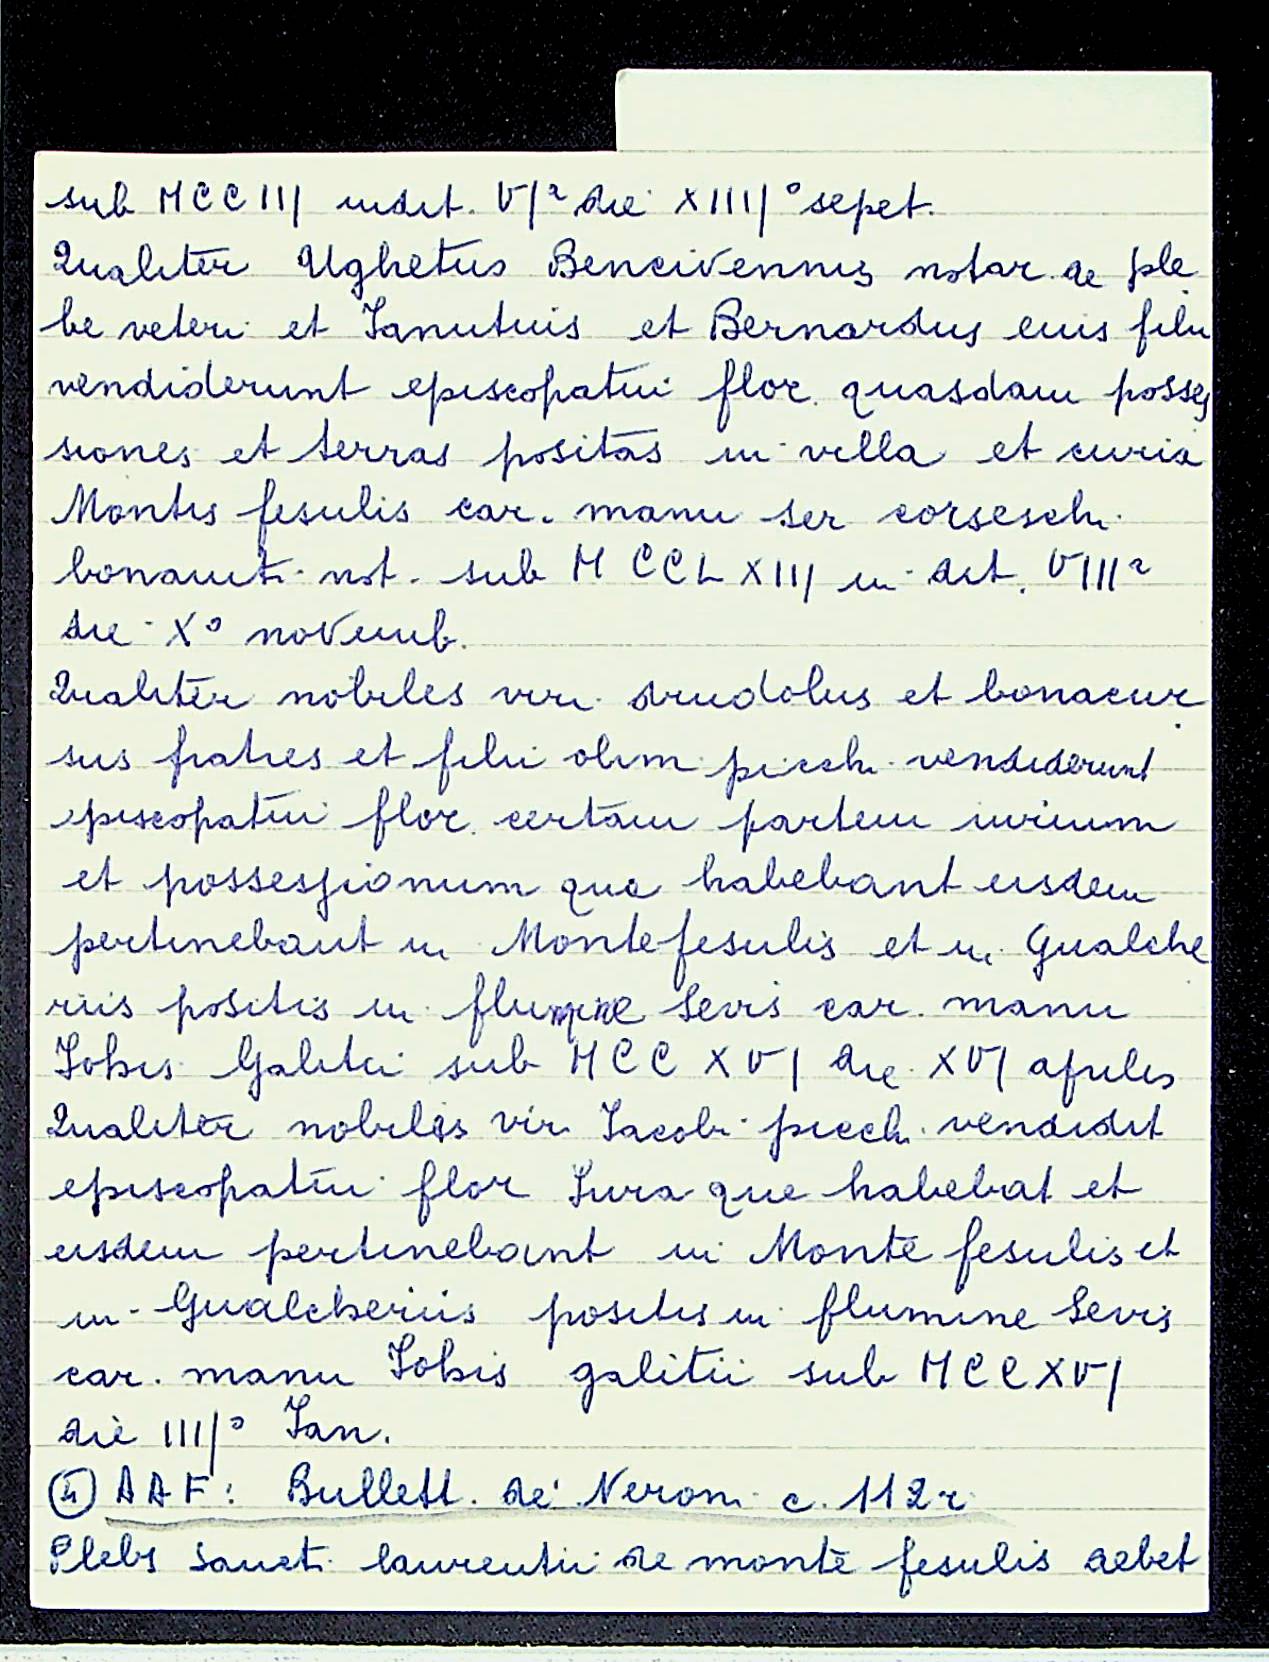 sub MCCIII indit. VIª die XIIII° sepet.
Qualiter Ughetus Bencivennis notar. de ple
be veteri et Ianutuis et Bernardus eius filii
vendiderunt episcopatui flor. quasdam posses
siones et terras positas in villa et curia
Montis fesulis car. manu ser corseschi
bonauiti not. sub MCCLXIII in dit. VIIIª
die X° novemb.
Qualiter nobiles viri drudolus et bonacur
sus fratres et filii olim picchi vendiderunt
episcopatui flor. certam partem iurium
et possessionum que habebant eisdem
pertinebant in Montefesulis et in Gualche
riis positis in flumine Sevis car. manu
Iohis Galitii sub MCCXVI die XVI aprilis
Qualiter nobilis vir Iacobi picchi vendidit
episcopatui flor Iura que habebat et
eisdem pertinebant in Monte fesulis et
in Gualcheriis positis in flumine Sevis
car. manu Iohis galitii sub MCCXVI
die IIII° Ian.
④ AAF: Bullett. dei Neroni c. 112r
Plebs Sancti laurentii de monte fesulis debet